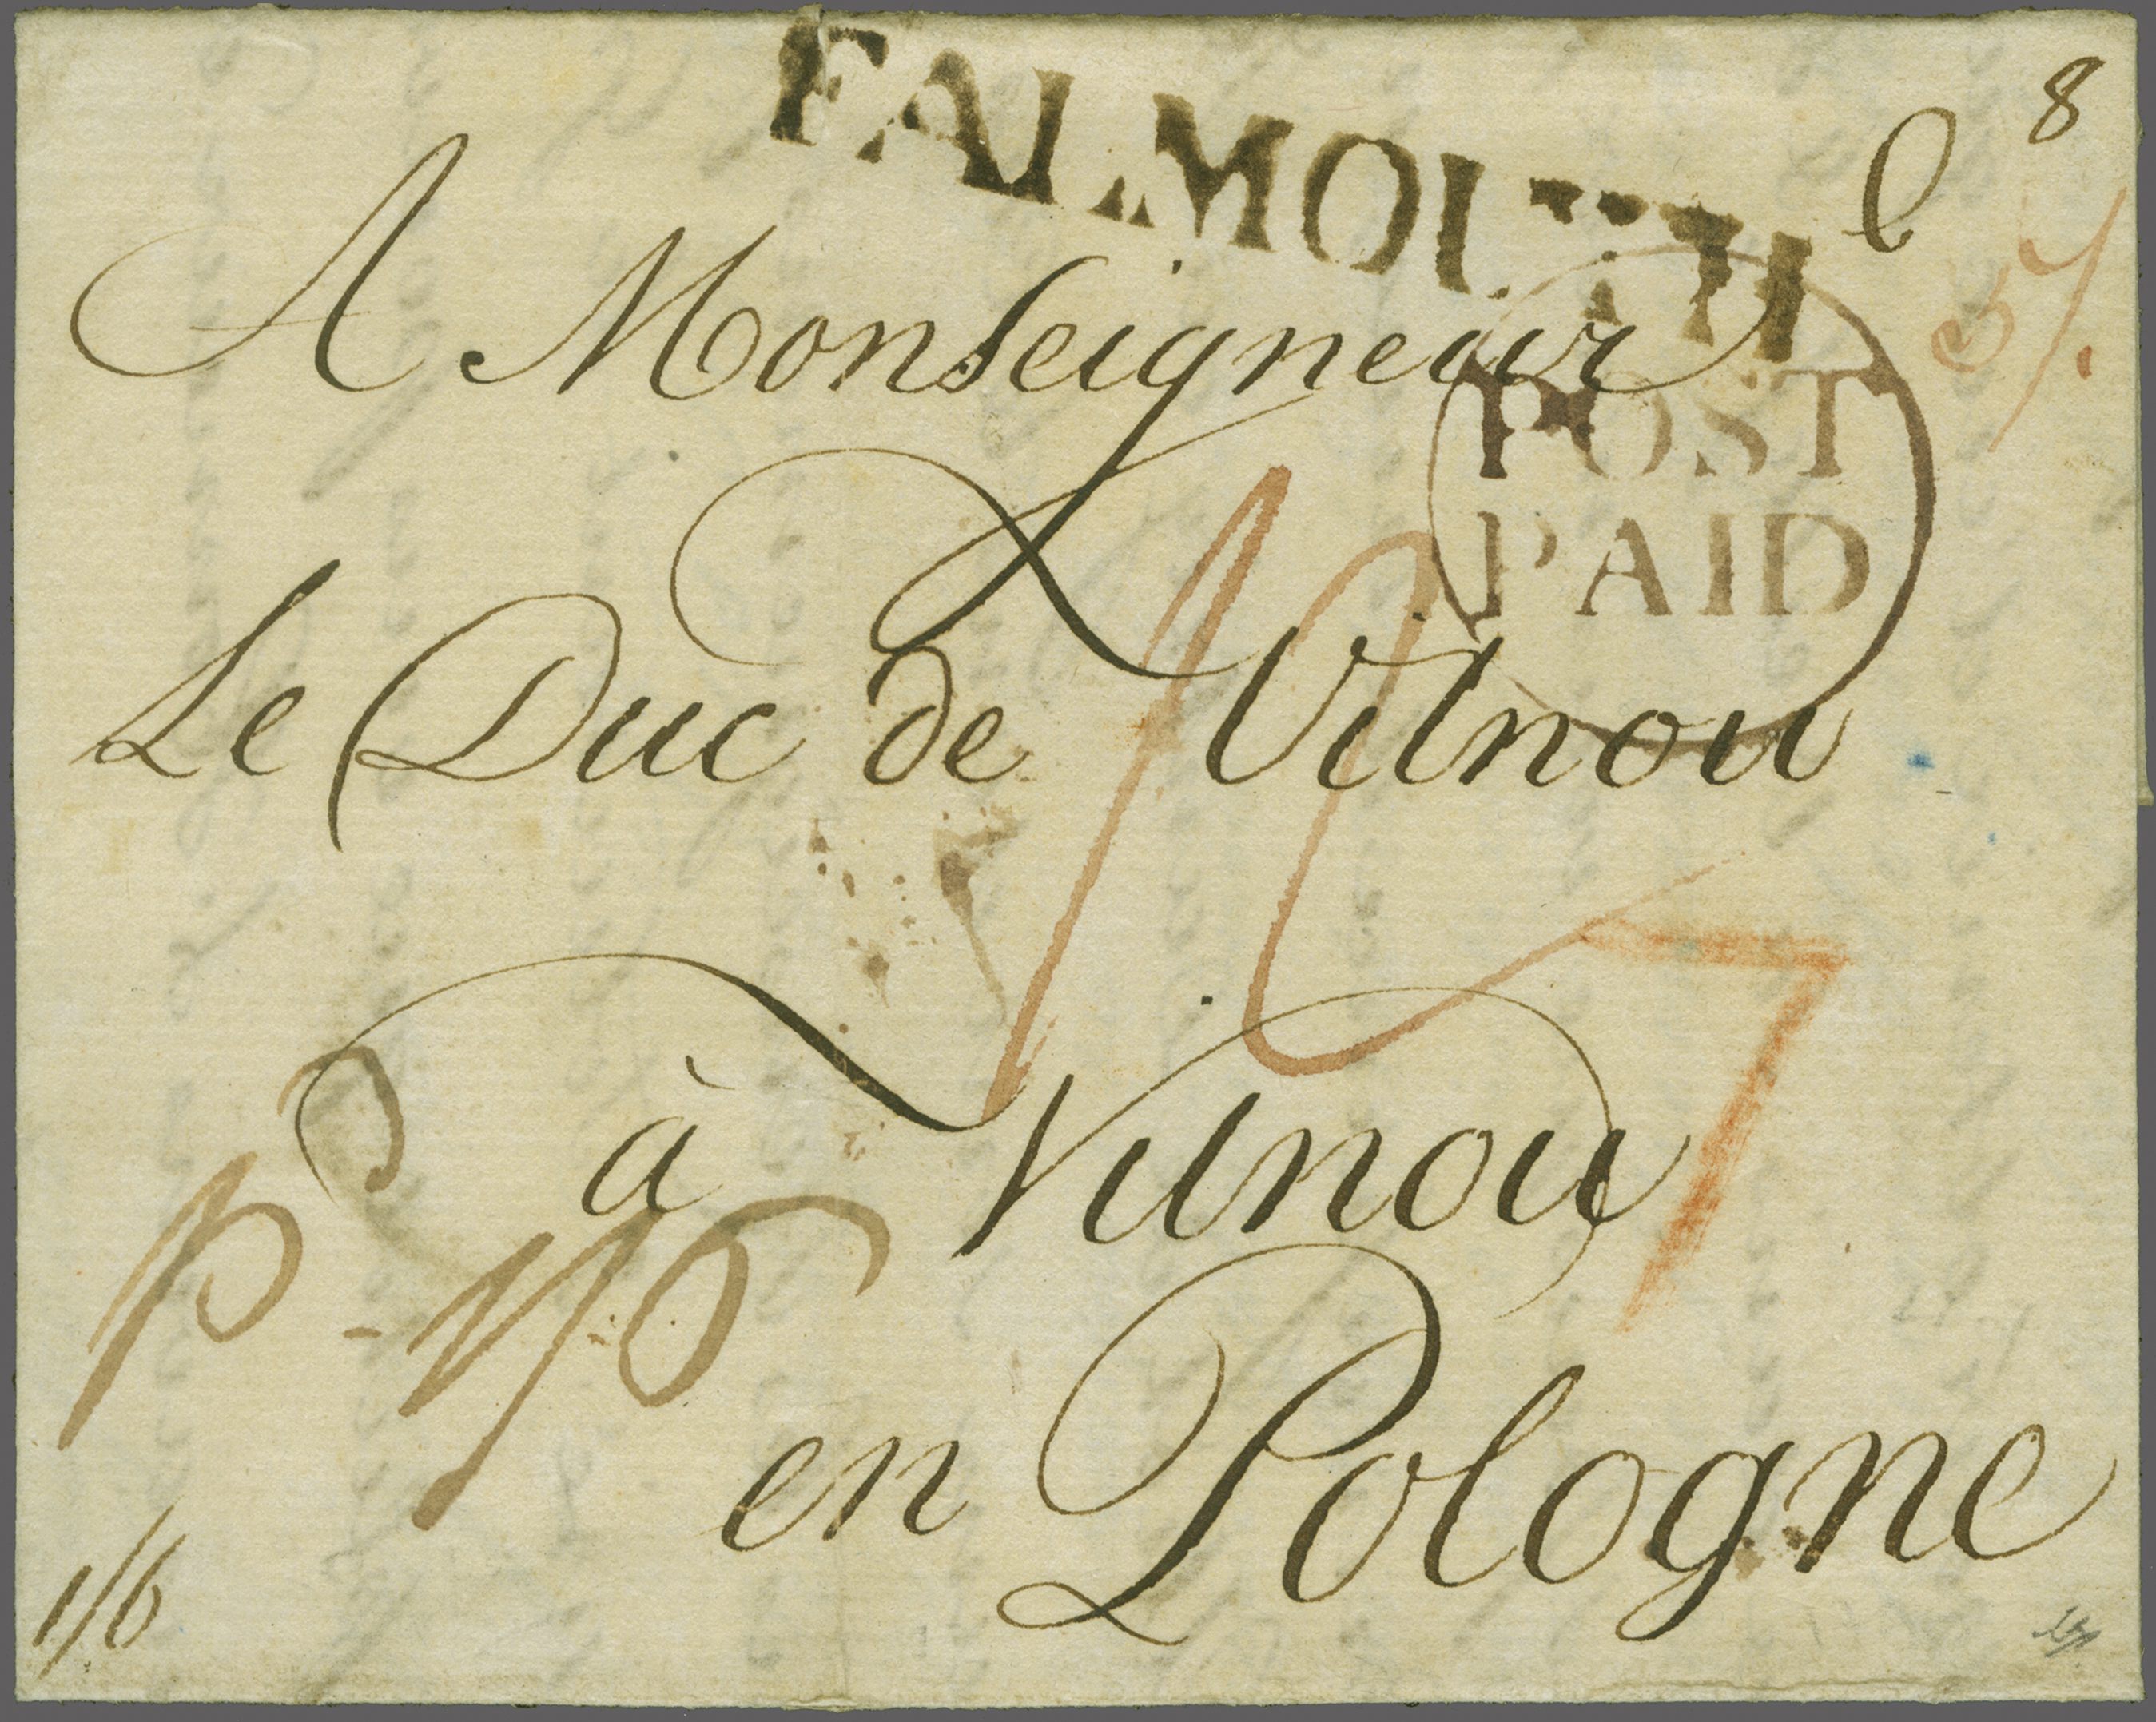 FALMOUTH
8
A Monseigneur
POST
PAID
Le Duc de Vilnou
à Vilnou
7
en Pologne
1/6